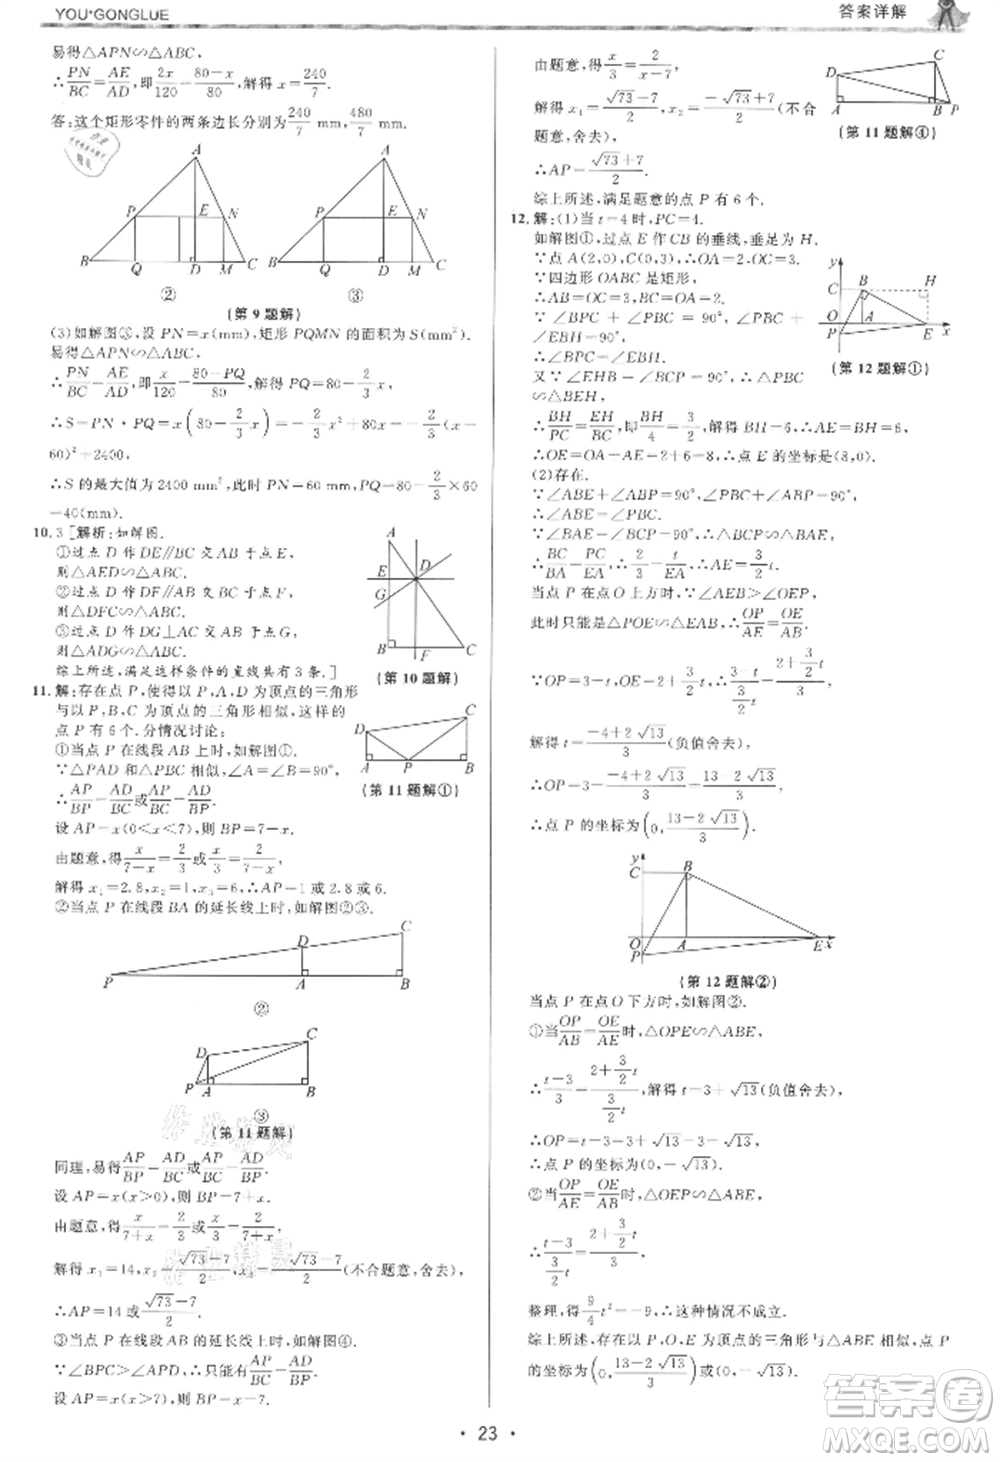 YOU+GONGLUE
答案详解
易得△APN∽△ABC,
∴PN/BC=AE/AD,即2x/120=(80-x)/80,解得 x=240/7.
答:这个矩形零件的两条边长分别为240/7 mm,480/7 mm.
A
P
E
N
B
Q
D
M
C
②
A
P
E
N
B
Q
D
M
C
③
(第 9 题解)
(3)如解图③,设 PN=x(mm),矩形 PQMN 的面积为 S(mm²).
易得△APN∽△ABC,
∴PN/BC=AE/AD,即x/120=(80-PQ)/80,解得 PQ=80-2/3x,
∴S=PN·PQ=x(80-2/3x)=-2/3x²+80x=-2/3(x-
60)²+2400,
∴S 的最大值为 2400 mm²,此时 PN=60 mm,PQ=80-2/3×60
=40(mm).
10.3 [解析:如解图.
①过点 D 作 DE∥BC 交 AB 于点 E,
则△AED∽△ABC.
②过点 D 作 DF∥AB 交 BC 于点 F,
则△DFC∽△ABC.
③过点 D 作 DG⊥AC 交 AB 于点 G,
则△ADG∽△ABC.
综上所述,满足这样条件的直线共有 3 条.]
A
E
D
G
B
F
C
(第 10 题解)
11.解:存在点 P,使得以 P,A,D 为顶点的三角形
与以 P,B,C 为顶点的三角形相似,这样的
点 P 有 6 个.分情况讨论:
①当点 P 在线段 AB 上时,如解图①.
∵△PAD 和△PBC 相似,∠A=∠B=90°,
∴AP/BP=AD/BC或AP/BC=AD/BP.
设 AP=x(0<x<7),则 BP=7-x.
由题意,得x/(7-x)=2/3或x/3=2/(7-x),
解得 x₁=2.8,x₂=1,x₃=6,∴AP=1 或 2.8 或 6.
②当点 P 在线段 BA 的延长线上时,如解图②③.
D
C
A
P
B
(第 11 题解①)
C
D
P
A
B
②
C
D
P
A
B
③
(第 11 题解)
同理,易得AP/BP=AD/BC或AP/BC=AD/BP.
设 AP=x(x>0),则 BP=7+x.
由题意,得x/(7+x)=2/3或x/3=2/(7+x),
解得 x₁=14,x₂=(√73-7)/2,x₃=(-√73-7)/2(不合题意,舍去),
∴AP=14 或(√73-7)/2.
③当点 P 在线段 AB 的延长线上时,如解图④.
∵∠BPC>∠APD,∴只能有AP/BC=AD/BP.
设 AP=x(x>7),则 BP=x-7.
由题意,得x/3=2/(x-7),
解得 x₁=(√73+7)/2,x₂=(-√73+7)/2(不合
题意,舍去),
∴AP=(√73+7)/2.
综上所述,满足题意的点 P 有 6 个.
C
D
A
B
P
(第 11 题解④)
12.解:(1)当 t=4 时,PC=4.
如解图①,过点 E 作 CB 的垂线,垂足为 H.
∵点 A(2,0),C(0,3),∴OA=2,OC=3.
∵四边形 OABC 是矩形,
∵∠BPC+∠PBC=90°,∠PBC+
∠EBH=90°,
∴∠BPC=∠EBH.
又∵∠EHB=∠BCP=90°,∴△PBC
∽△BEH,
∴BH/PC=EH/BC,即BH/4=3/2,解得 BH=6,∴AE=BH=6,
∴OE=OA+AE=2+6=8,∴点 E 的坐标是(8,0).
y
C
B
H
O
A
P
E
x
(第 12 题解①)
(2)存在.
∵∠ABE+∠ABP=90°,∠PBC+∠ABP=90°,
∴∠ABE=∠PBC.
∵∠BAE=∠PCB=90°,∴△BCP∽△BAE,
∴BC/BA=PC/EA,∴2/3=t/EA,∴EA=3/2t.
当点 P 在点 O 上方时,∵∠AEB>∠OEP,
此时只能是△POE∽△EAB,∴OP/AE=OE/AB,
∵OP=3-t,∴(3-t)/(3/2t)=(2+3/2t)/3,
解得 t=(-4+2√13)/3(负值舍去),
∴OP=3-(-4+2√13)/3=(13-2√13)/3,
∴点 P 的坐标为(0,(13-2√13)/3).
y
C
B
O
A
E
x
P
(第 12 题解②)
当点 P 在点 O 下方时,如解图②.
①当OP/AB=OE/AE时,△OPE∽△ABE,
∴(t-3)/3=(2+3/2t)/(3/2t),解得 t=3+√13(负值舍去),
∴OP=t-3=3+√13-3=√13,
∴点 P 的坐标为(0,-√13).
②当OP/AE=OE/AB时,△OEP∽△ABE,
∴(t-3)/(3/2t)=(2+3/2t)/3,
整理,得9/4t²=-9,∴这种情况不成立.
综上所述,存在以 P,O,E 为顶点的三角形与△ABE 相似,点 P
的坐标为(0,(13-2√13)/3)或(0,-√13).
· 23 ·
答案圈
MXQE.COM